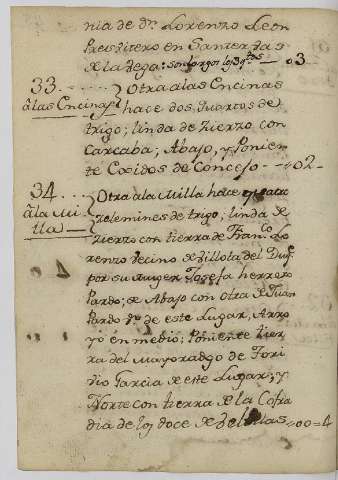 nia de Dn. Lorenzo Leon
Presvitero en Santervas
de la Vega: son largos los 3 qtos — 03
33 . . . . Otra a las Encinas
a las Encinas hace dos quartos de
trigo; linda de Zierzo con
Carcaba; Abajo, y Ponien-
te Cosidos de Concejo — 02
34 . . . . Otra a la Milla hace quatro
a la Mi- zelemines de trigo; linda de
lla — Zierzo con tierra de Franco. Lo
renzo vecino de Villota del Duq.
por su muger Josefa herrero
Pardo; de Abajo con otra de Juan
Pardo vo. de este Lugar, Arro
yo en medio; Poniente tier
ra del Mayoradgo de Tori
vio Garcia de este Lugar; y
Norte con tierra de la Cofra
dia de los doce de Velillas = 00 = 4